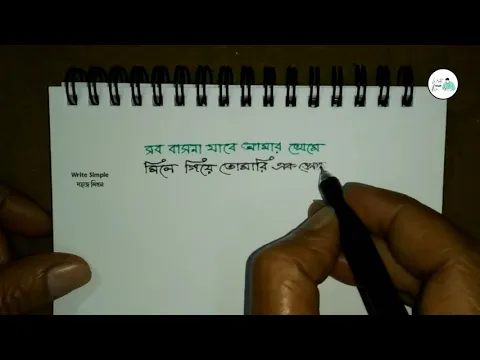 সব বাসনা যাবে আমার থেমে
মিলে গিয়ে তোমারি এক প্রেমে
Write Simple
সহজে লিখন